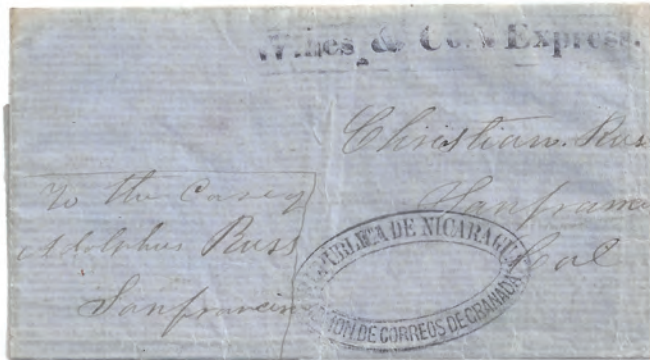 & Co.'s Express.
Christian. Russ
Sanfrancis
Cal
To the Care of
Adolphus Russ
Sanfrancisco
REPUBLICA DE NICARAGUA
DE CORREOS DE GRANADA